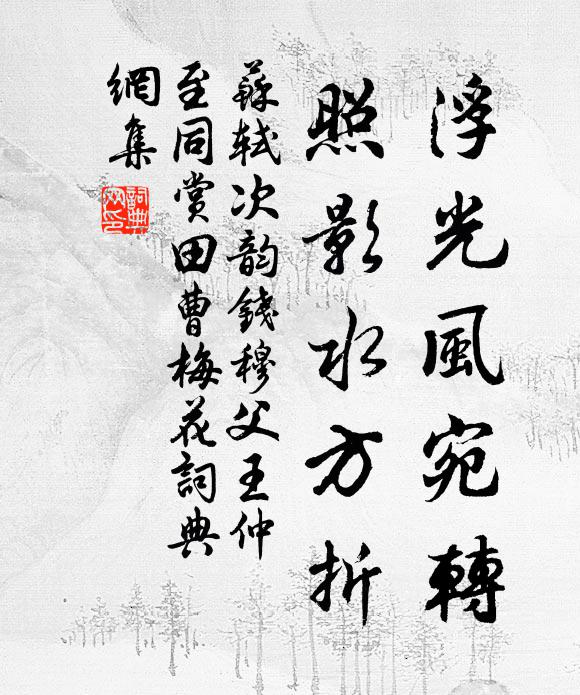 浮光風宛轉
照影水方折
蘇軾次韵錢穆父王仲
至同賞田曹梅花詞典
網集
詞典
网印